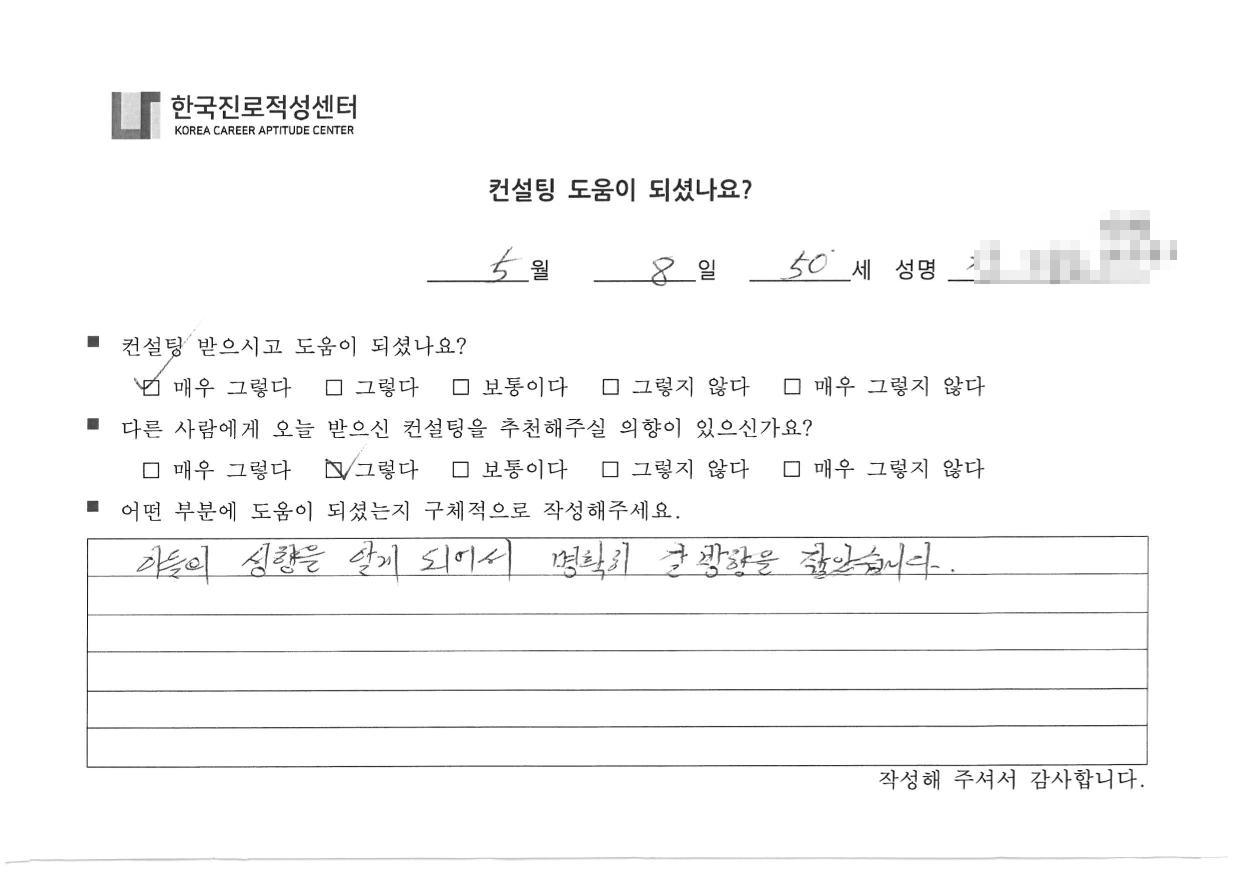 한국진로적성센터
KOREA CAREER APTITUDE CENTER
컨설팅 도움이 되셨나요?
5월 8일 50세 성명
■ 컨설팅 받으시고 도움이 되셨나요?
☑ 매우 그렇다 □ 그렇다 □ 보통이다 □ 그렇지 않다 □ 매우 그렇지 않다
■ 다른 사람에게 오늘 받으신 컨설팅을 추천해주실 의향이 있으신가요?
□ 매우 그렇다 ☑ 그렇다 □ 보통이다 □ 그렇지 않다 □ 매우 그렇지 않다
■ 어떤 부분에 도움이 되셨는지 구체적으로 작성해주세요.
아들의 성향을 알게 되어서 명확히 갈 방향을 잡았습니다.
작성해 주셔서 감사합니다.